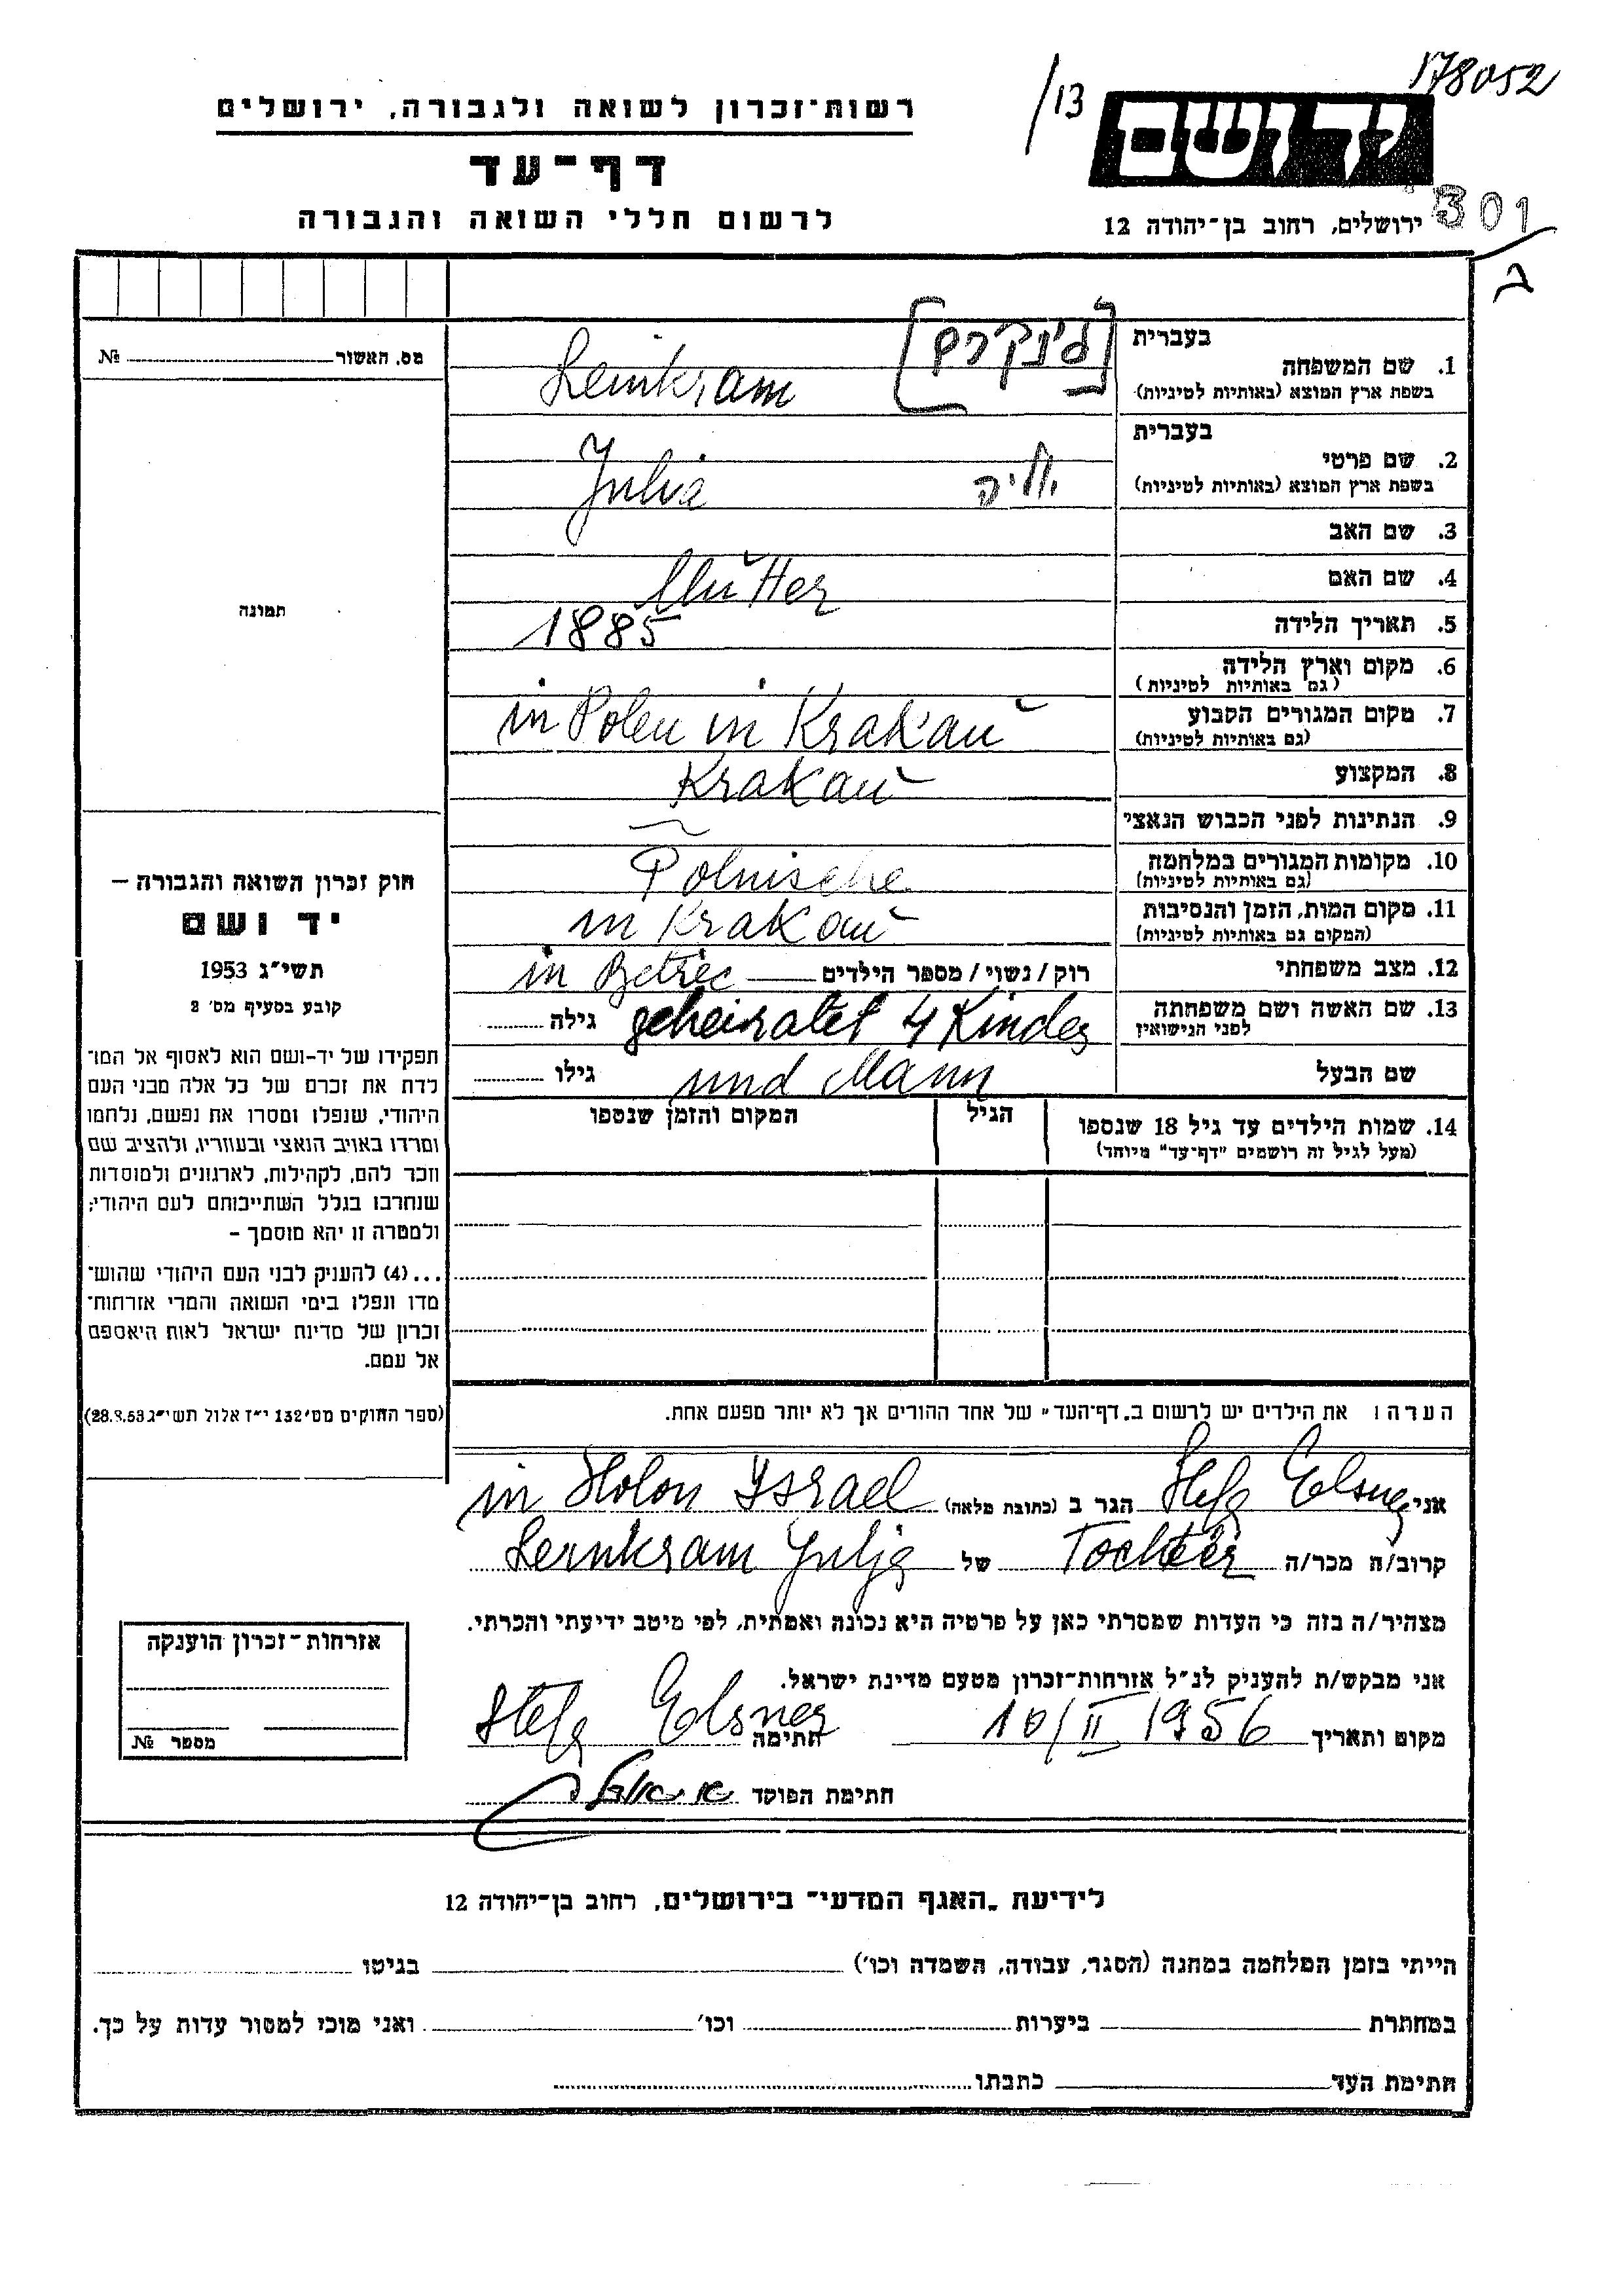 178052
/13
רשות־זכרון לשואה ולגבורה, ירושלים
יד ושם
דף־עד
301
לרשום חללי השואה והגבורה
ירושלים, רחוב בן־יהודה 12
ב
בעברית
1. שם המשפחה
בשפת ארץ המוצא (באותיות לטיניות)
[לינקרם]
Leinkram
בעברית
2. שם פרטי
בשפת ארץ המוצא (באותיות לטיניות)
יוליה
Julia
3. שם האב
4. שם האם
Mutter
5. תאריך הלידה
1885
6. מקום וארץ הלידה
(גם באותיות לטיניות)
7. מקום המגורים הקבוע
(גם באותיות לטיניות)
in Polen in Krakau
8. המקצוע
Krakau
9. הנתינות לפני הכבוש הנאצי
10. מקומות המגורים במלחמה
(גם באותיות לטיניות)
Polnische
11. מקום המות, הזמן והנסיבות
(המקום גם באותיות לטיניות)
in Krakau
12. מצב משפחתי
רוק / נשוי / מספר הילדים
in
13. שם האשה ושם משפחתה
לפני הנישואין
geheiratet 4 Kinder
גילה
שם הבעל
und Mann
גילו
14. שמות הילדים עד גיל 18 שנספו
(מעל לגיל זה רושמים "דף־עד" מיוחד)
הגיל
המקום והזמן שנספו
מס. האשור № 
תמונה
חוק זכרון השואה והגבורה –
יד ושם
תשי"ג 1953
קובע בסעיף מס' 2
תפקידו של יד-ושם הוא לאסוף אל המו־
לדת את זכרם של כל אלה מבני העם
היהודי, שנפלו ומסרו את נפשם, נלחמו
ומרדו באויב הנאצי ובעוזריו, ולהציב שם
וזכר להם, לקהילות, לארגונים ולמוסדות
שנחרבו בגלל השתייכותם לעם היהודי;
ולמטרה זו יהא מוסמך –
...(4) להעניק לבני העם היהודי שהוש־
מדו ונפלו בימי השואה והמרי אזרחות־
זכרון של מדינת ישראל לאות היאספם
אל עמם.
(ספר החוקים מס' 132 י"ז אלול תשי"ג 28.8.53)
הערה: את הילדים יש לרשום ב„דף־העד" של אחד ההורים אך לא יותר מפעם אחת.
אני Stefa Elsner הגר ב (כתובת מלאה) in Holon Israel
קרוב/ה מכר/ה Tochter של Leinkram Julja
מצהיר/ה בזה כי העדות שמסרתי כאן על פרטיה היא נכונה ואמתית, לפי מיטב ידיעתי והכרתי.
אני מבקש/ת להעניק לנ"ל אזרחות־זכרון מטעם מדינת ישראל.
מקום ותאריך 10/II 1956 חתימה Stefa Elsner
חתימת הפוקד
אזרחות־זכרון הוענקה
מספר №
לידיעת „האגף המדעי" בירושלים, רחוב בן־יהודה 12
הייתי בזמן המלחמה במחנה (הסגר, עבודה, השמדה וכו') בגיטו
במחתרת ביערות וכו' ואני מוכן למסור עדות על כך.
חתימת העד כתבתו